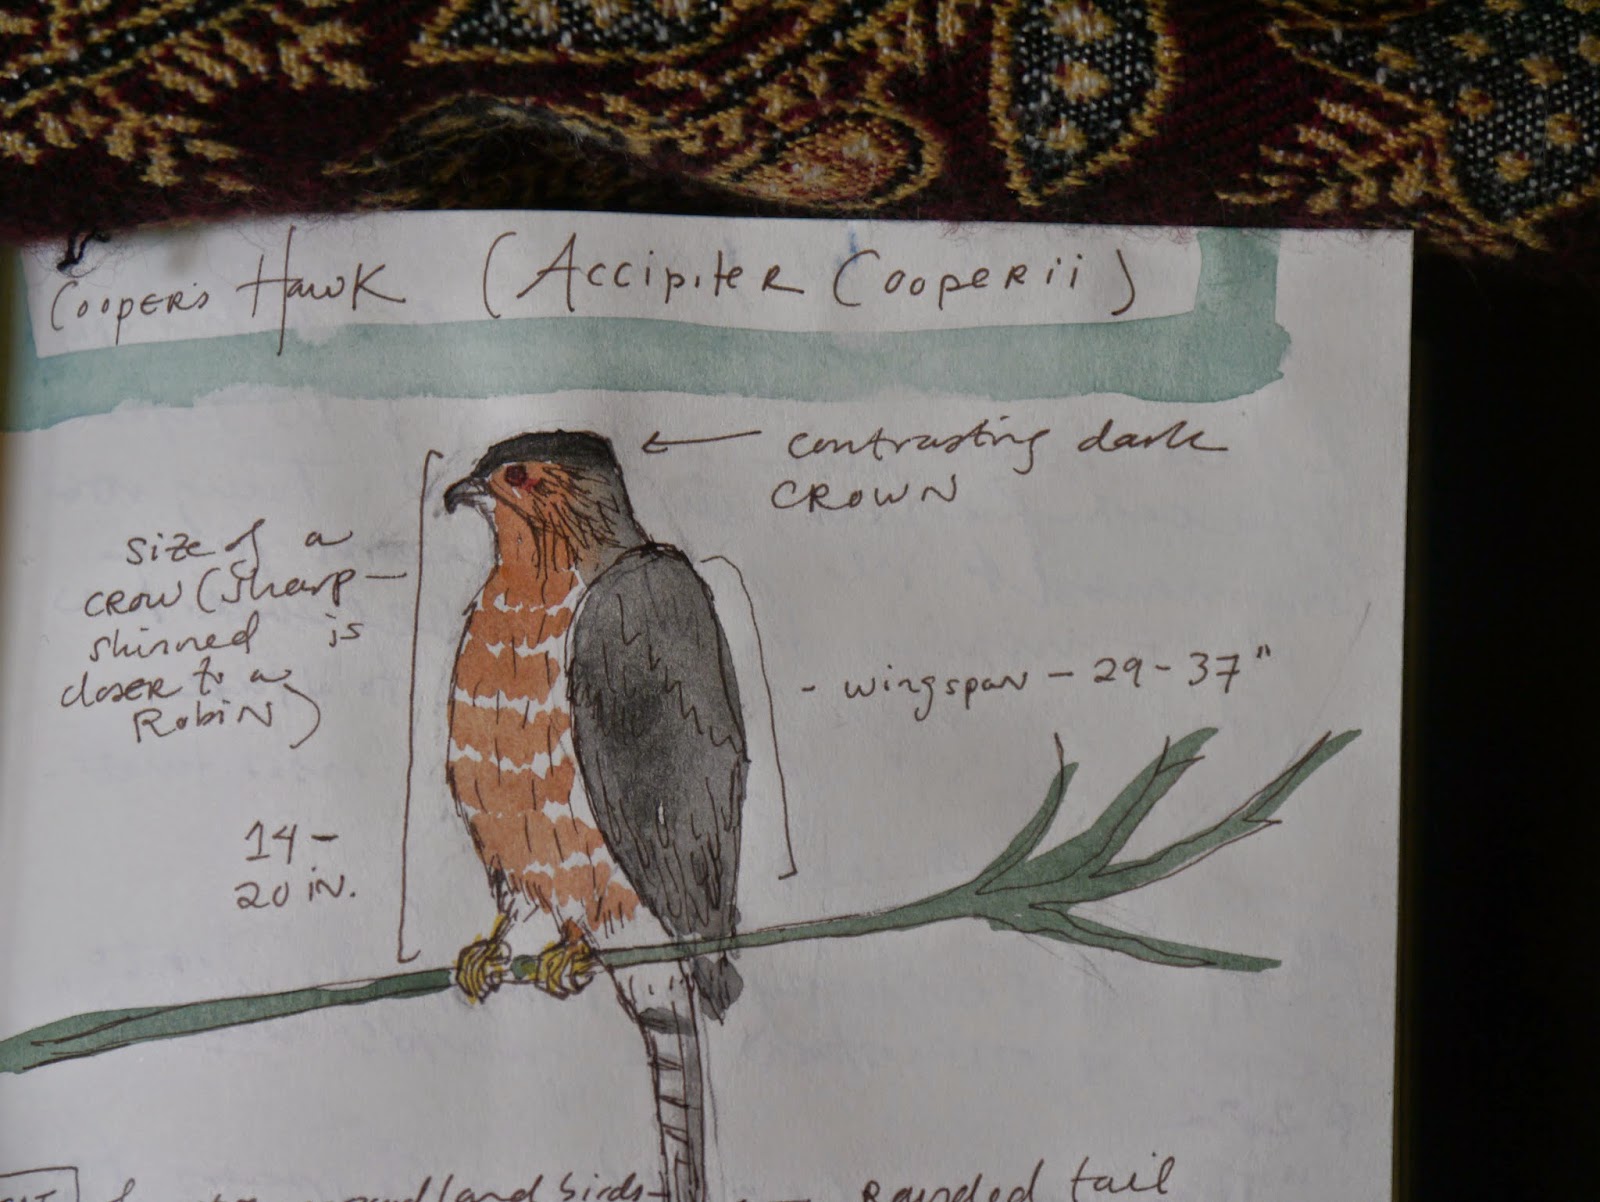 Cooper's Hawk (Accipiter Cooperii)
contrasting dark
CROWN
size of a
crow (Sharp-
shinned is
closer to a
Robin)
- wingspan - 29-37"
14-
20 in.
land birds-
Rounded tail